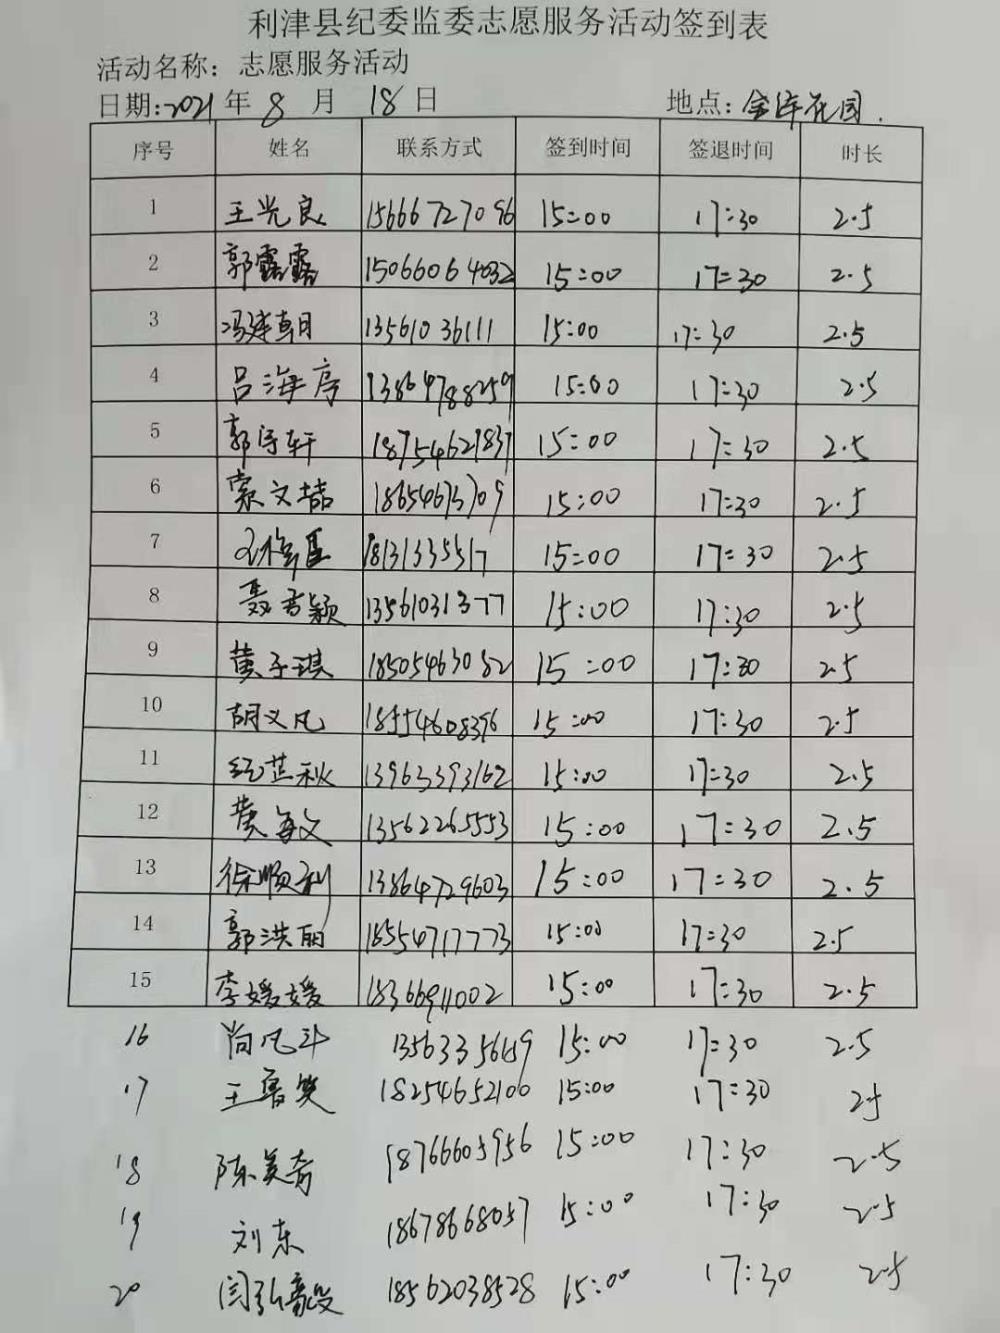 利津县纪委监委志愿服务活动签到表
活动名称：志愿服务活动
日期:2021年8月18日 地点:花园.
序号 姓名 联系方式 签到时间 签退时间 时长
1 王光良 15666727096 15:00 17:30 2.5
2 郭露露 15066064032 15:00 17:30 2.5
3 冯建朝 13561036111 15:00 17:30 2.5
4 吕海序 13864788259 15:00 17:30 2.5
5 郭 18754627837 15:00 17:30 2.5
6 索文喆 15:00 17:30 2.5
7 15:00 17:30 2.5
8 聂君颖 13561031377 15:00 17:30 2.5
9 黄子琪 18505463082 15:00 17:30 2.5
10 胡义凡 18554608396 15:00 17:30 2.5
11 纪芷秋 13963393162 15:00 17:30 2.5
12 黄敏文 13562265553 15:00 17:30 2.5
13 徐顺利 13864729603 15:00 17:30 2.5
14 郭洪丽 18554717773 15:00 17:30 2.5
15 李媛媛 18366911002 15:00 17:30 2.5
16 尚凡斗 13563356419 15:00 17:30 2.5
17 王 18254652100 15:00 17:30 2.5
18 陈美斋 18766605956 15:00 17:30 2.5
19 刘东 18678668057 15:00 17:30 2.5
20 闫弘毅 18562038528 15:00 17:30 2.5